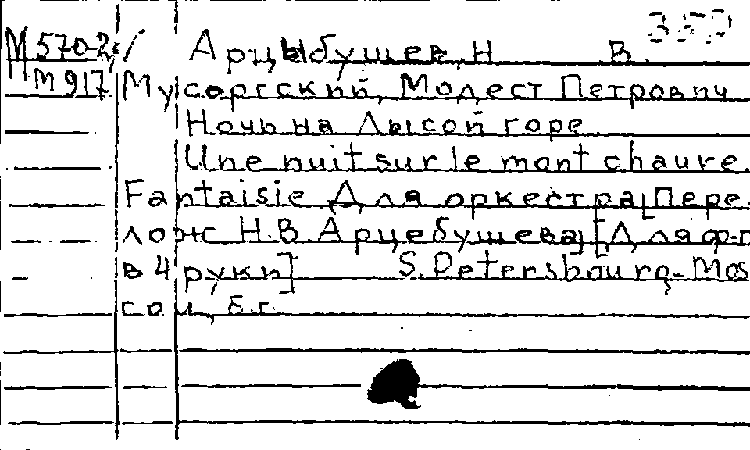 М 570-2/ Арцыбушев, Н. В.
М 917 Мусоргский, Модест Петрович
Ночь на Лысой горе
Une nuit sur le mont chauve.
Fantaisie Для оркестра [Пере-
лож Н.В. Арцебушева] [Для ф-п
в 4 руки] S. Petersbourg-Mos
cou, б.г.